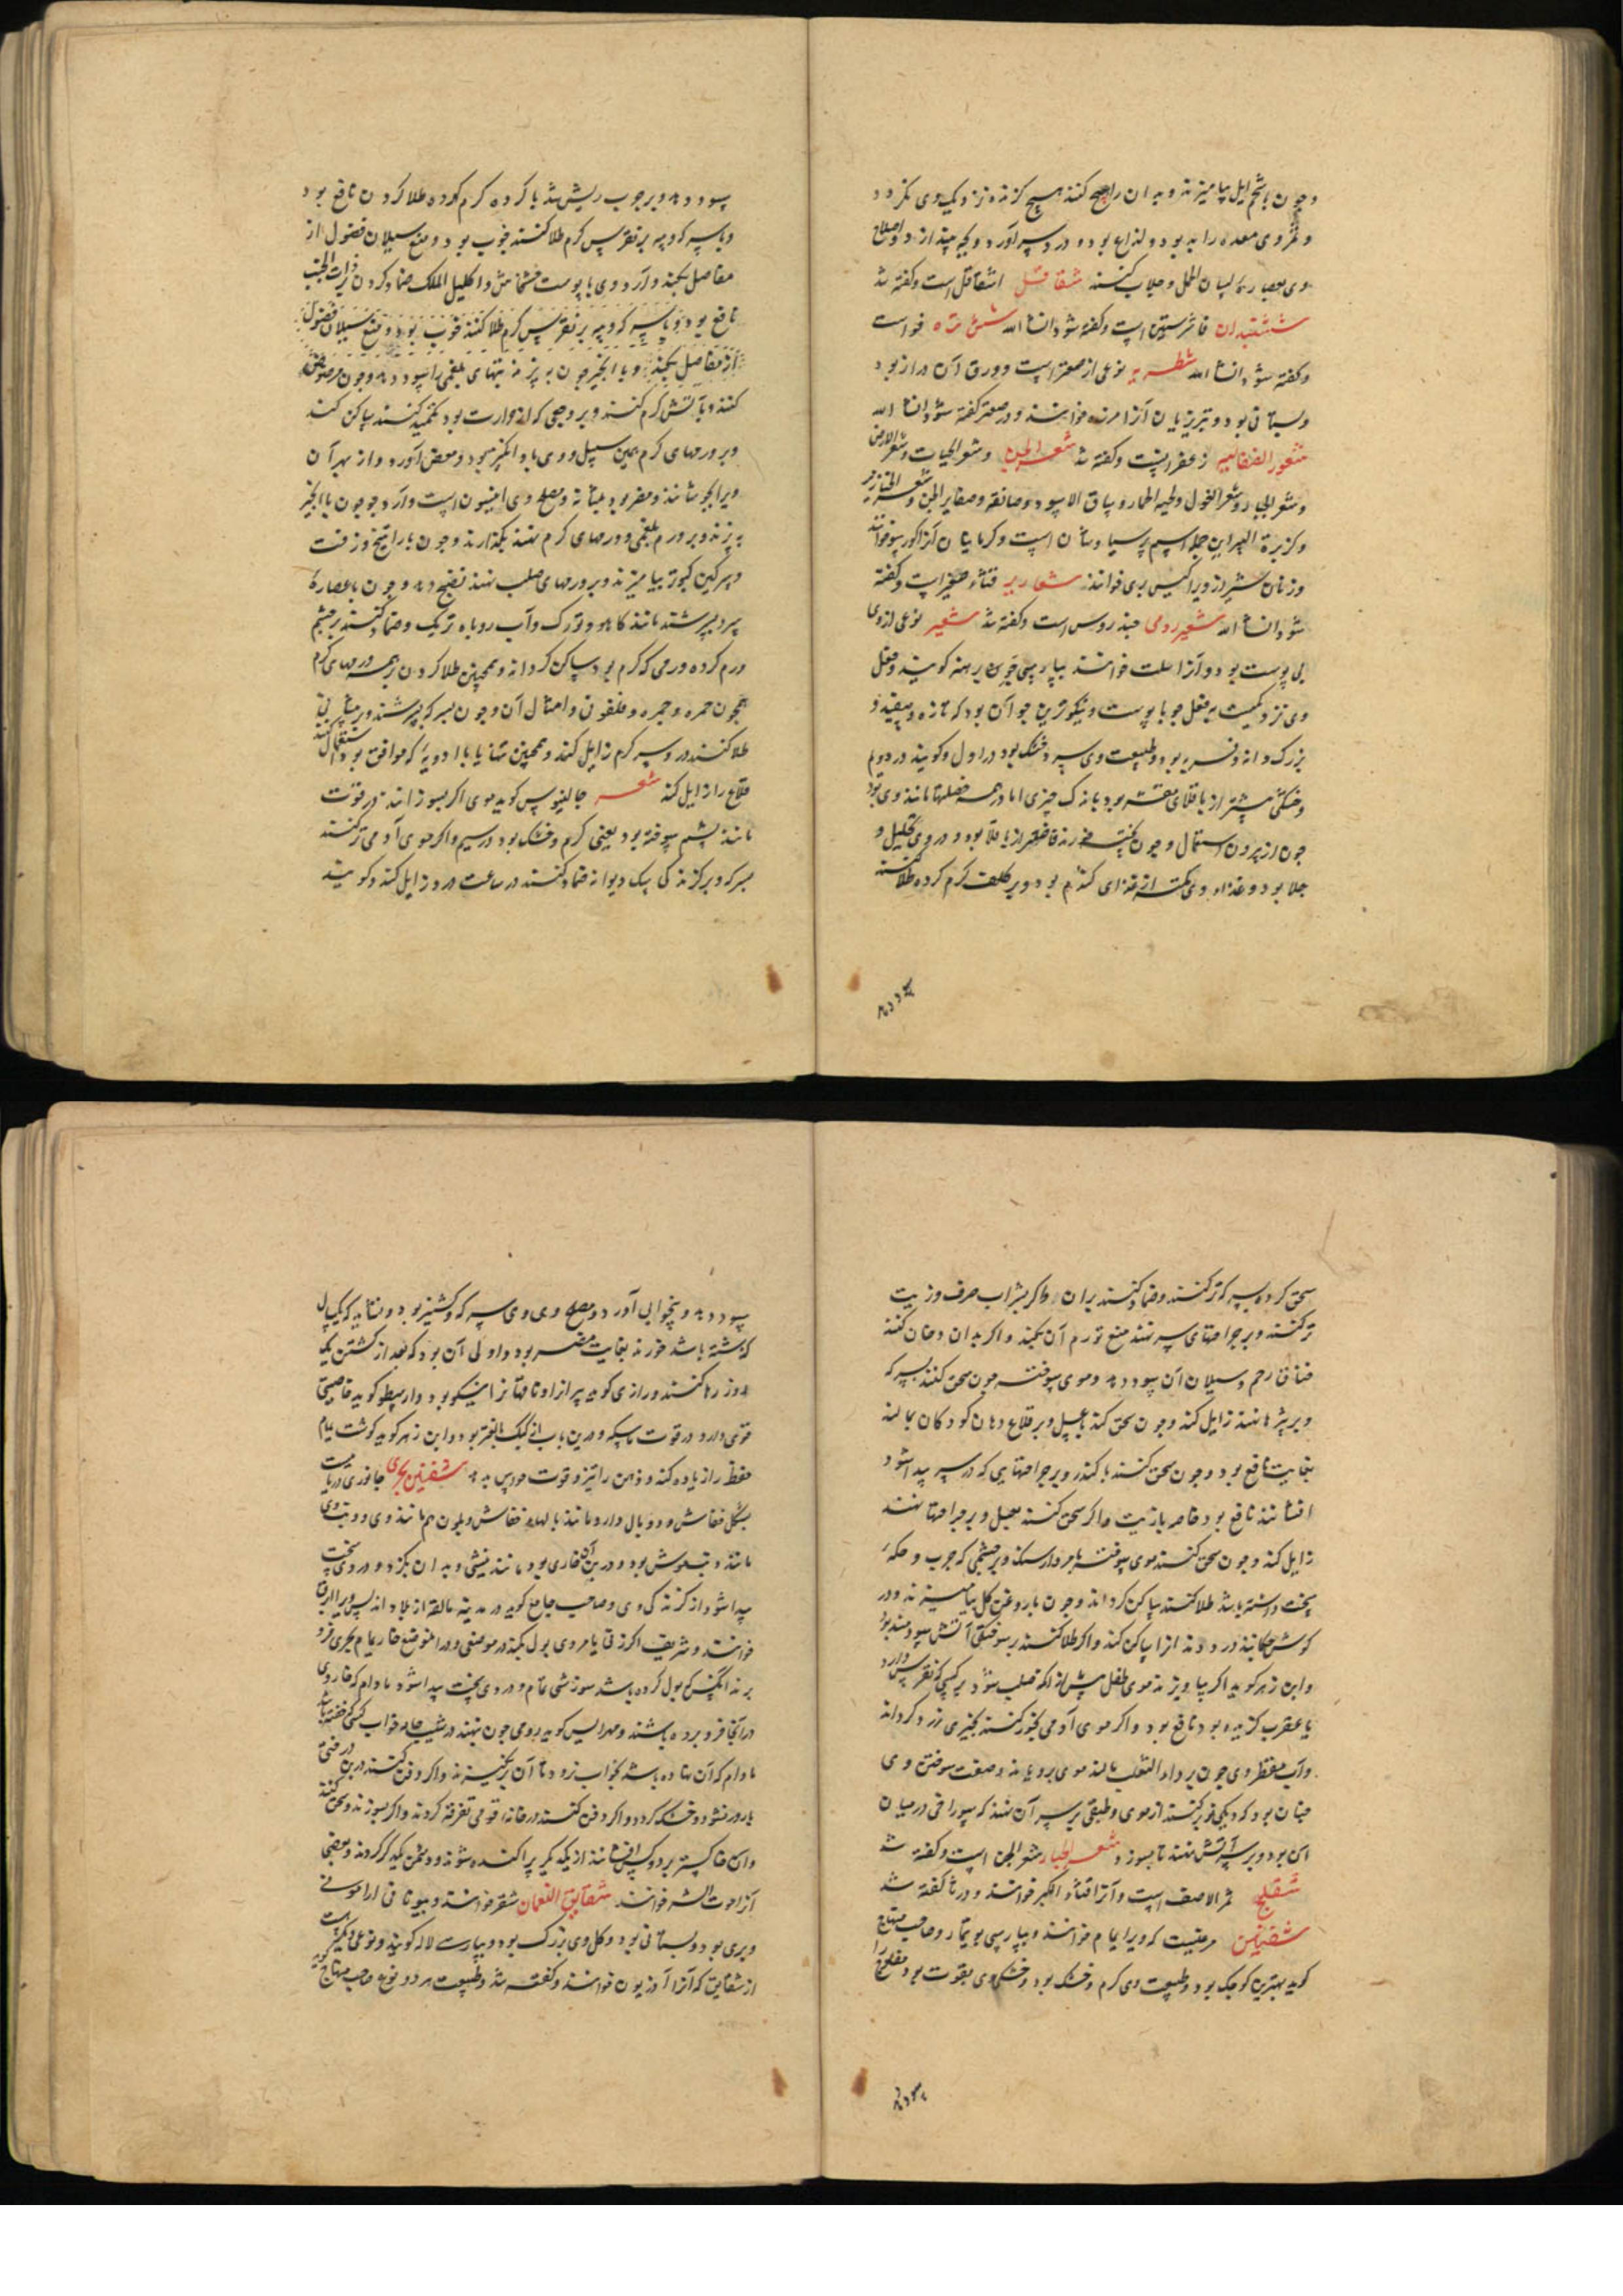 و چون با شحم ایل بیامیزند و بدان رایحه کنند هیچ گزنده نزدیک وی نگردد
و ثمر وی معده را بد بود و لذاع بود و درد سر آورد و بچه بیندازد و اصلاح
وی بعصاره لسان الحمل و جلاب کنند شقاقل اشقاقل است و گفته شد
ششبندان فاشرستین است و گفته شود انشا الله
و گفته شود انشا الله شطریه نوعی از صعتر است و ورق آن دراز بود
و بستانی بود و تبریزیان آنرا مرزه خوانند و در صعتر گفته شود انشا الله
شعور الصقالبه زعفرانست و گفته شد و شعر الحیات و شعر الارض
و شعر الجبار و شعر الغول و لحیة الحمار و ساق الاسود و صانقه و صفایر الجن و شعر الخنازیر
و کزبرة البیر این جمله اسم پرسیاوشان است و کرمانیان آنرا
و زنان شیراز ویرا گیس پری خوانند شعاریر قثاء صغیر است و گفته
شود انشا الله شعیر رومی خندروس است و گفته شد شعیر نوعی از وی
بی پوست بود و آنرا سلت خوانند بپارسی جو برهنه گویند و فعل
وی نزدیکست بفعل جو با پوست و نیکوترین جو آن بود که تازه و سفید و
بزرگ دانه و فربه بود و طبیعت وی سرد و خشک بود در اول و گویند در دویم
و خشکی بیشتر از باقلای مقشر بود باندک چیزی اما در همه فعلها مانند وی بود
چون از بیرون استعمال و چون پخته خورند فاضلتر از باقلا بود و در وی تحلیل و
جلا بود و غذاء وی کمتر از غذای گندم بود و بر کلف گرم کرده طلا کنند
سود دهد و بر جرب ریش شده با گرده گرم کرده طلا کردن نافع بود
و با سرکه و به بر نقرس گرم طلا کنند خوب بود و منع سیلان فضول از
مفاصل بکند و آرد وی با پوست خشخاش و اکلیل الملک ضماد کردن ذات الجنب
نافع بود و با سرکه و به بر نقرس گرم طلا کنند خوب بود و منع سیلان فضول
از مفاصل بکند و با انجیر چون بپزند تبهای بلغمی را سود دهد و چون
کنند و بآتش گرم کنند و بر وجعی که از حرارت بود تکمید کنند ساکن کند
و بر ورمهای گرم همین سبیل و وی باد انگیز بود و مغص آورد و از بهر آن
ویرا بجوشانند و مضر بود بمثانه و مصلح وی انیسون است و آرد جو چون با انجیر
بپزند و بر ورم بلغمی و ورمهای گرم نهند بگدازند و چون با راتینج و زفت
و سرگین کبوتر بیامیزند و بر ورمهای صلب نهند نضج دهد و چون با عصارهٔ
سرد بسرشند مانند کاهو و تورک و آب روباه تربک و ضماد کنند بر چشم
ورم کرده ورمی که گرم بود ساکن گرداند و همچنین طلا کردن بر همه ورمهای گرم
همچون حمره و جمره و فلغمونی و امثال آن و چون بسرکه بسرشند و بر پیشانی
طلا کنند درد سر گرم زایل کند و همچنین تنها یا با ادویهٔ که موافق بود استعمال کنند
قلاع را زایل کند شعر جالینوس گوید موی اگر بسوزانند در قوت
مانند پشم سوخته بود یعنی گرم و خشک بود در سیم و اگر موی آدمی تر کنند
بسرکه و بر گزندگی سگ دیوانه ضماد کنند در ساعت درد زایل کند و گویند
سحق کرده بسرکه تر کنند و ضماد کنند بدان و اگر بشراب صرف و زیت
تر کنند و بر جراحتهای سر نهند منع تورم آن بکند و اگر بدان دخان کنند
خناق رحم و سیلان آن سود دهد و موی سوخته چون سحق کنند بسرکه
و بر بثرها نهند زایل کند و چون سحق کنند با عسل و بر قلاع دهان کودکان بمالند
بغایت نافع بود و چون سحق کنند با کندر و بر جراحتهایی که در سر پیدا شود
افشانند نافع بود خاصه با زیت و اگر سحق کنند بعسل و بر جراحتها نهند
زایل کند و چون سحق کنند موی سوخته با مردارسنگ و بر چشمی که جرب و حکهٔ
سخت داشته باشد طلا کنند ساکن گرداند و چون با روغن گل بیامیزند و در
گوش چکانند درد دندان را ساکن کند و اگر طلا کنند بر سوختگی آتش سودمند بود
و ابن زهر گوید اگر بیاویزند موی طفل پیش از آنکه صلب شود بر کسی که نقرس دارد
یا عقرب گزیده بود نافع بود و اگر موی آدمی بخور کنند بچیزی زرد گرداند
و آب مقطر وی چون بر داء الثعلب مالند موی برویاند و صفت سوختن وی
چنان بود که دیگی نو پر کنند از موی و طبقی بر سر آن نهند که سوراخی در میان
آن بود و بر سر آتش نهند تا بسوزد شعر الجبار شعر الجن است و گفته شد
شفلح ثمر الاصف است و آنرا قثاء الکبر خوانند و در ثا گفته شد
شفنین مرغیست که ویرا یمام خوانند و بپارسی بوتیمار و صاحب منهاج
گوید بهترین کوچک بود و طبیعت وی گرم و خشک بود و خشکی وی بقوت بود مفلوج را
سود دهد و بیخوابی آورد و مصلح وی سرکه و گشنیز بود و نشاید که یکسال
گذشته باشد خوردن بغایت مضر بود و اولی آن بود که بعد از کشتن یک
روز رها کنند و رازی گوید
قوی دارد در قوت ماسکه و ابن زهر گوید گوشت یمام
حفظ را زیاده کند و ذهن را تیز و قوت حواس بدهد شفنین بحری جانوری دریاییست
بشکل خفاش و دو بال دارد مانند بالهای خفاش و بلون هم مانند وی و ذنب وی
مانند دنب موش بود و در بن آن خاری بود مانند نیشی و بدان بگزد و دردی سخت
پیدا شود از گزندگی وی و صاحب جامع گوید در مدینه مالقه از بلاد اندلس ویرا الرق
خوانند و شریف
بدانکس که بول کرده باشد سوزشی تمام و دردی سخت پیدا شود مادام که خار وی
در آنجا فرو برده باشند و مهراریس گوید رومی چون نهند در شیب جامه خواب کسی که خفته باشد
مادام که آن نهاده باشد بخواب نرود تا آن برنگیرند و اگر دفن کنند در بن درختی
بارور نشود و خشک گردد و اگر دفن کنند در خانهٔ قومی تفرقه گردند و اگر بسوزند و سحق کنند
و آن خاکستر بر دو کس افشانند از یکدیگر پراکنده شوند و دشمن یکدیگر گردند و بعضی
آنرا خوانند شقایق النعمان شقر خوانند و بیونانی
و بری بود و بستانی بود و گل وی بزرگ بود و بپارسی لاله گویند و نوعی دیگر هست
از شقایق که آنرا آذریون خوانند و گفته شد و طبیعت هر دو نوع صاحب منهاج گوید